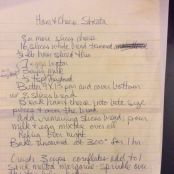 Ham & Cheese Strata
8 or more slices cheese
16 slices white bread trimmed
ham sliced thin
7 eggs beaten
3 cups milk
½ tsp mustard
Butter 9x13 pan and cover bottom
w/ 8 slices bread
Break ham & cheese into bite size
pieces & over the bread
Add remaining slices bread, pour
milk & egg mixture over all
Refrig. Over night
Bake uncovered at 300° for 1 hr
Crush 3 cups cornflakes add to ½
stick melted margarine sprinkle over